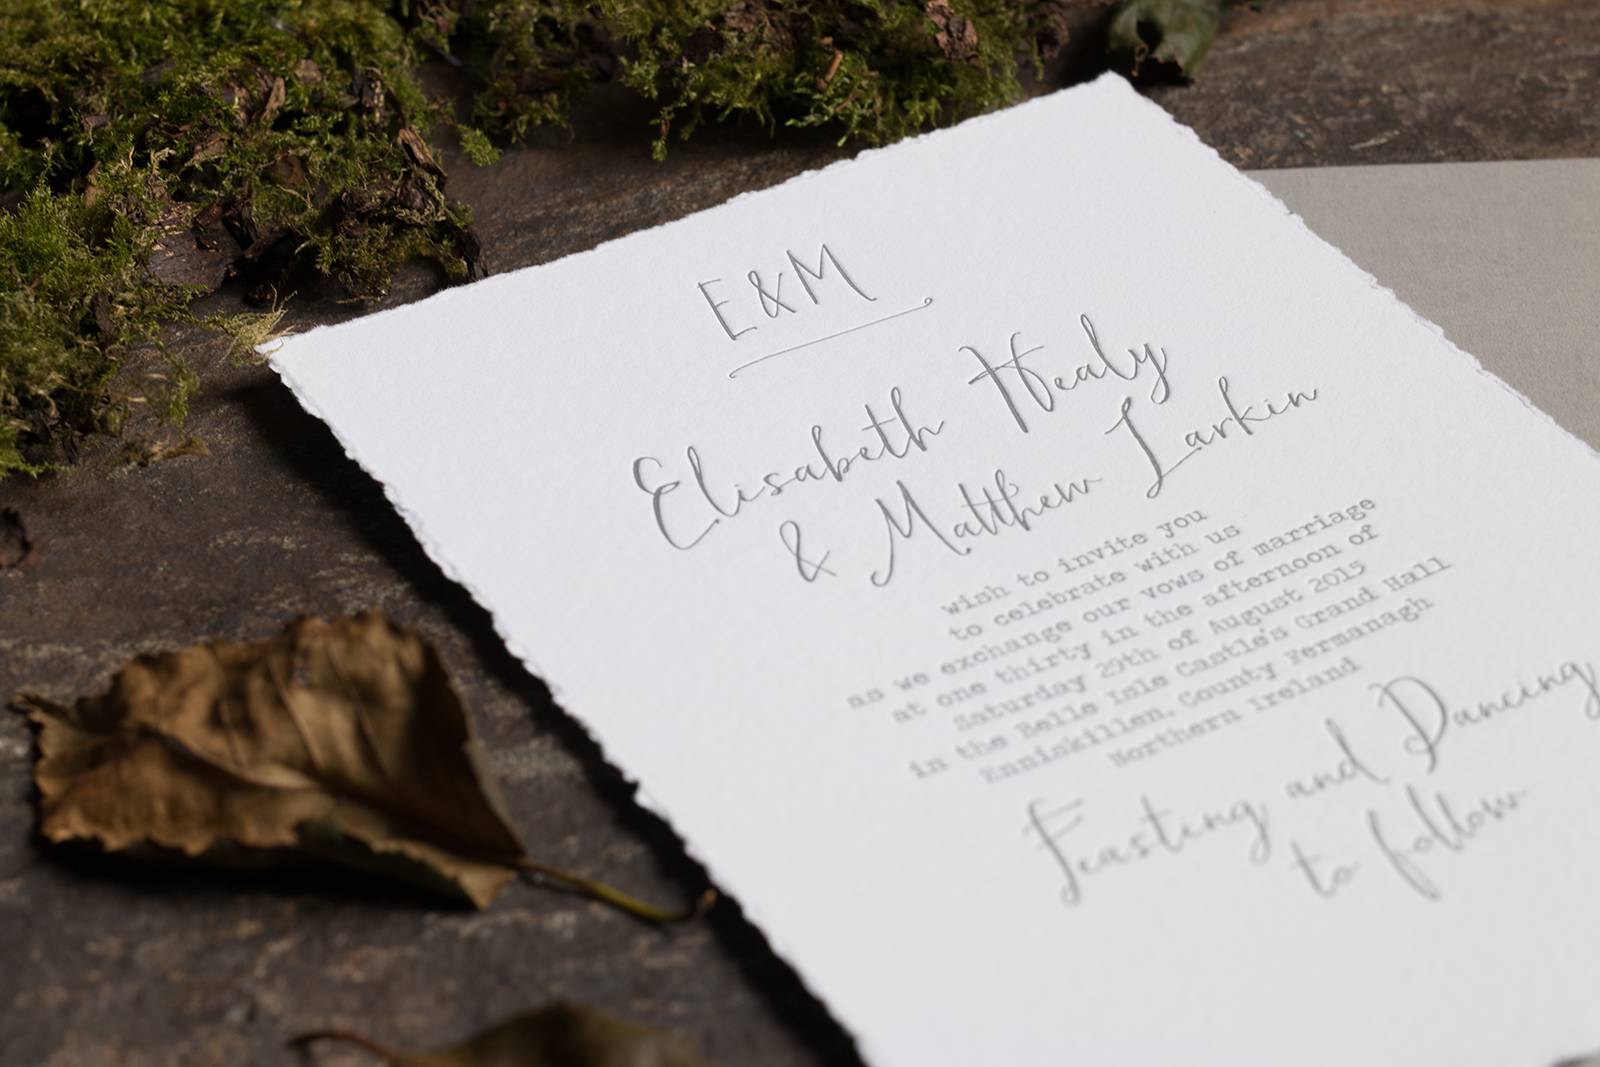 E&M
Elisabeth Healy
& Matthew Larkin
wish to invite you
to celebrate with us
as we exchange our vows of marriage
at one thirty in the afternoon of
Saturday 29th of August 2015
in the Belle Isle Castle's Grand Hall
Enniskillen, County Fermanagh
Northern Ireland
Feasting and Dancing
to follow